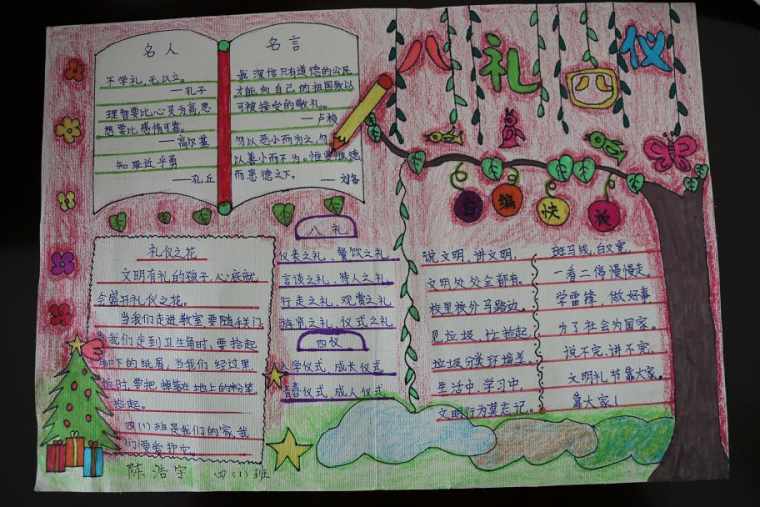 八礼四仪
名人
不学礼，无以立。
——孔子
理智要比心灵为高，思
想要比感情可靠。
——高尔基
知耻近乎勇
——孔丘
名言
最深信只有道德的公民
才能向自己的祖国致以
可被接受的敬礼。
——卢梭
勿以恶小而为之，勿
以善小而不为。惟贤惟德
——刘备
自编快板
礼仪之花
文明有礼的孩子，心底就
会盛开礼仪之花。
当我们走进教室要随手关门
我们走到卫生角时，要捡起
下的纸屑，当我们经过
时，要把掉落在地上的粉笔
捡起。
四(1)班是我们的家，我
们要爱护它
八礼
仪表之礼、餐饮之礼
言谈之礼、待人之礼
行走之礼、观赏之礼
游览之礼、仪式之礼
四仪
入学仪式、成长仪式
青春仪式、成人仪式
说文明，讲文明，
文明处处全都有。
校里校外马路边。
见垃圾，忙捡起，
垃圾分类环境美。
生活中，学习中，
文明行为莫忘记。
班马线，白又宽，
一看二停慢慢走。
学雷锋，做好事
为了社会为国家。
说不完，讲不完，
文明礼节靠大家。
靠大家！
陈浩宇 四(1)班